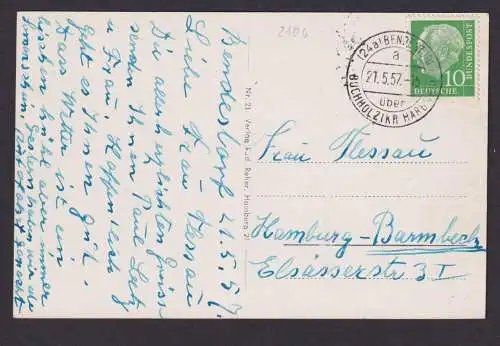 2106
Bendestorf 21.5.57.
Liebe Frau Nessau
Die allerherzlichsten Grüs-
senden Ihnen Paul
u Frau. Hoffentlich
geht es Ihnen gut.
Das Wetter ist ein
bischen kühl aber immer
Gestern haben wir die
gemacht
Nr. 21 Verlag Rud. Reher, Hamburg 21
(24a) BENDESTORF
a
21.5.57
über
BUCHHOLZ (KR HARBURG)
DEUTSCHE
BUNDESPOST
10
Frau Nessau
Hamburg-Barmbeck
Elsässerstr 3 I